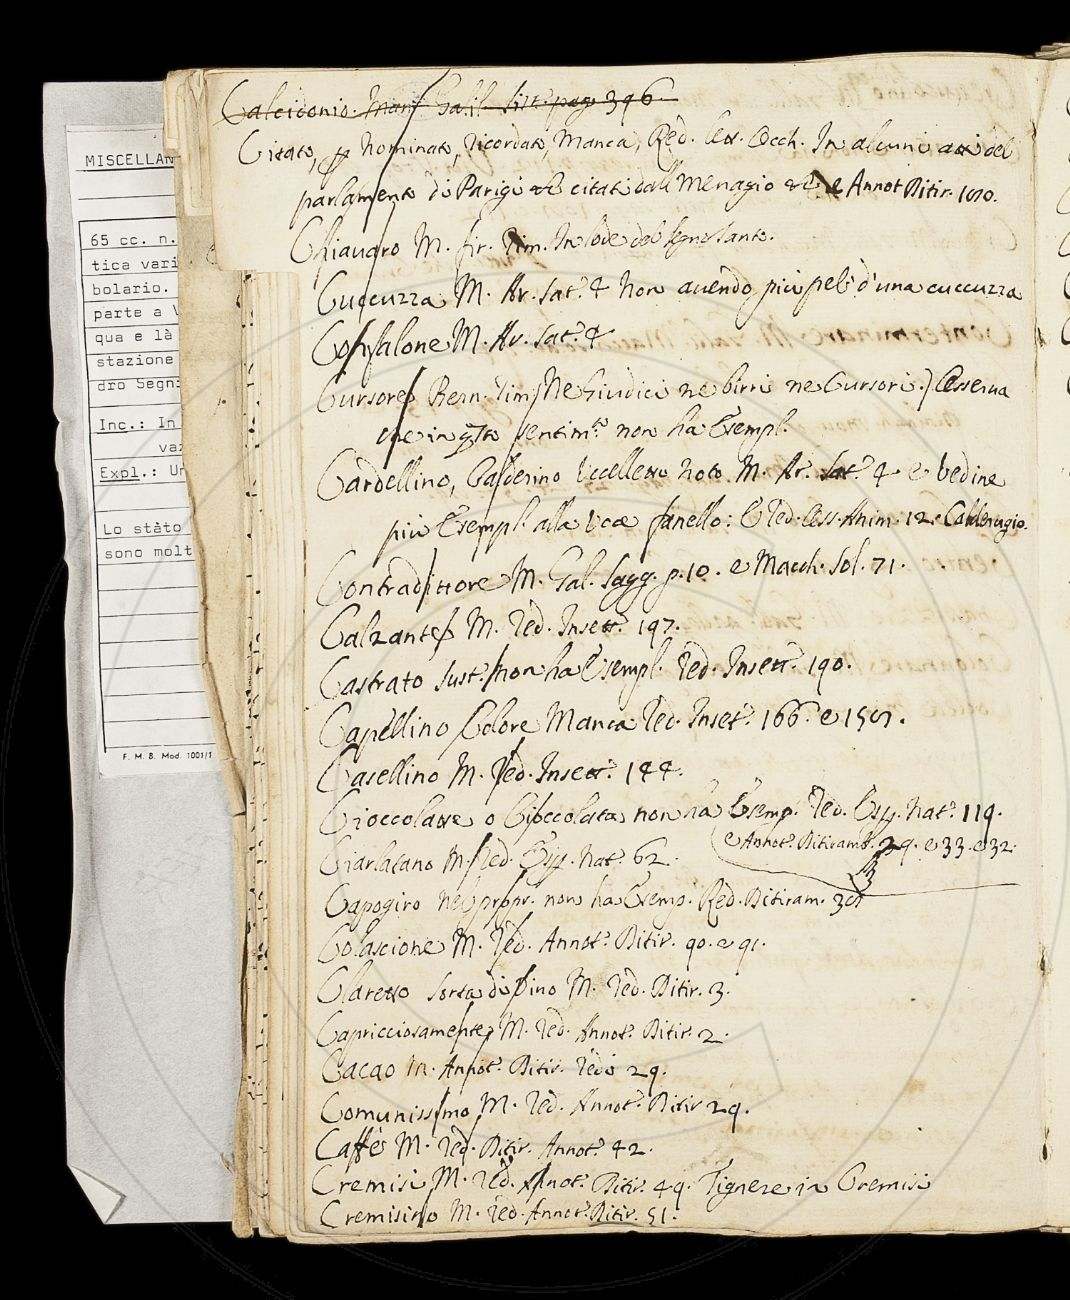 MISCELLAN
65 cc. n.
tica vari
bolario.
parte a V
qua e là
stazione
dro Segni
Inc.: In
vaz
Expl.: Un
Lo stàto
sono molt
F. M. B. Mod. 1001/1
Calcidonio. Gall. pag. 396.
Citato, p Nominato, Ricordato, Manca, Red. lett. Occh. In alcuni atti del
parlamento di Parigi citati dal Menagio e Annot Ditir. 100.
Chiavaro M. fir. Rim. In lode del legno santo.
Cuccuzza M. Ar. Sat. 4 Non avendo più peli d'una cuccuzza
Confalone M. Ar. Sat. 4
Cursore Bern. Rim Ne Giudici ne birri ne Cursori.) Osserva
che in qsto sentimto non ha Esempl.
Cardellino, Calderino Uccelletto noto M. Ar. Sat. 4 e vedine
più Esempl. alla Voce fanello: E Red. Oss. Anim. 12. Calderugio.
Contradittore M. Gal. Sagg. p. 10. e Macch. Sol. 71.
Calzante M. Red. Insett. 197.
Castrato sust. non ha Esempl. Red. Insett. 190.
Capellino Colore Manca Red. Inset. 166. e
Casellino M. Red. Insett. 144.
Cioccolatte o Cioccolata non ha Esemp. Red. Esp. Nat. 119.
e Annot. Ditiramb. 29. e 33. e 32.
Ciarlatano M. Red. Esp. Nat. 62.
Capogiro nel propr. non ha Esemp. Red. Ditiram.
Colascione M. Red. Annot. Ditir. 90. e 91.
Claretto sorta di vino M. Red. Ditir. 3.
Capricciosamente M. Red. Annot. Ditir. 2.
Cacao M. Annot. Ditir. Redi 29.
Comunissimo M. Red. Annot. Ditir 29.
Caffè M. Red. Ditir. Annot. 42.
Cremisi M. Red. Annot. Ditir. 49. Tignere in Cremisi
Cremisino M. Red. Annot. Ditir. 51.